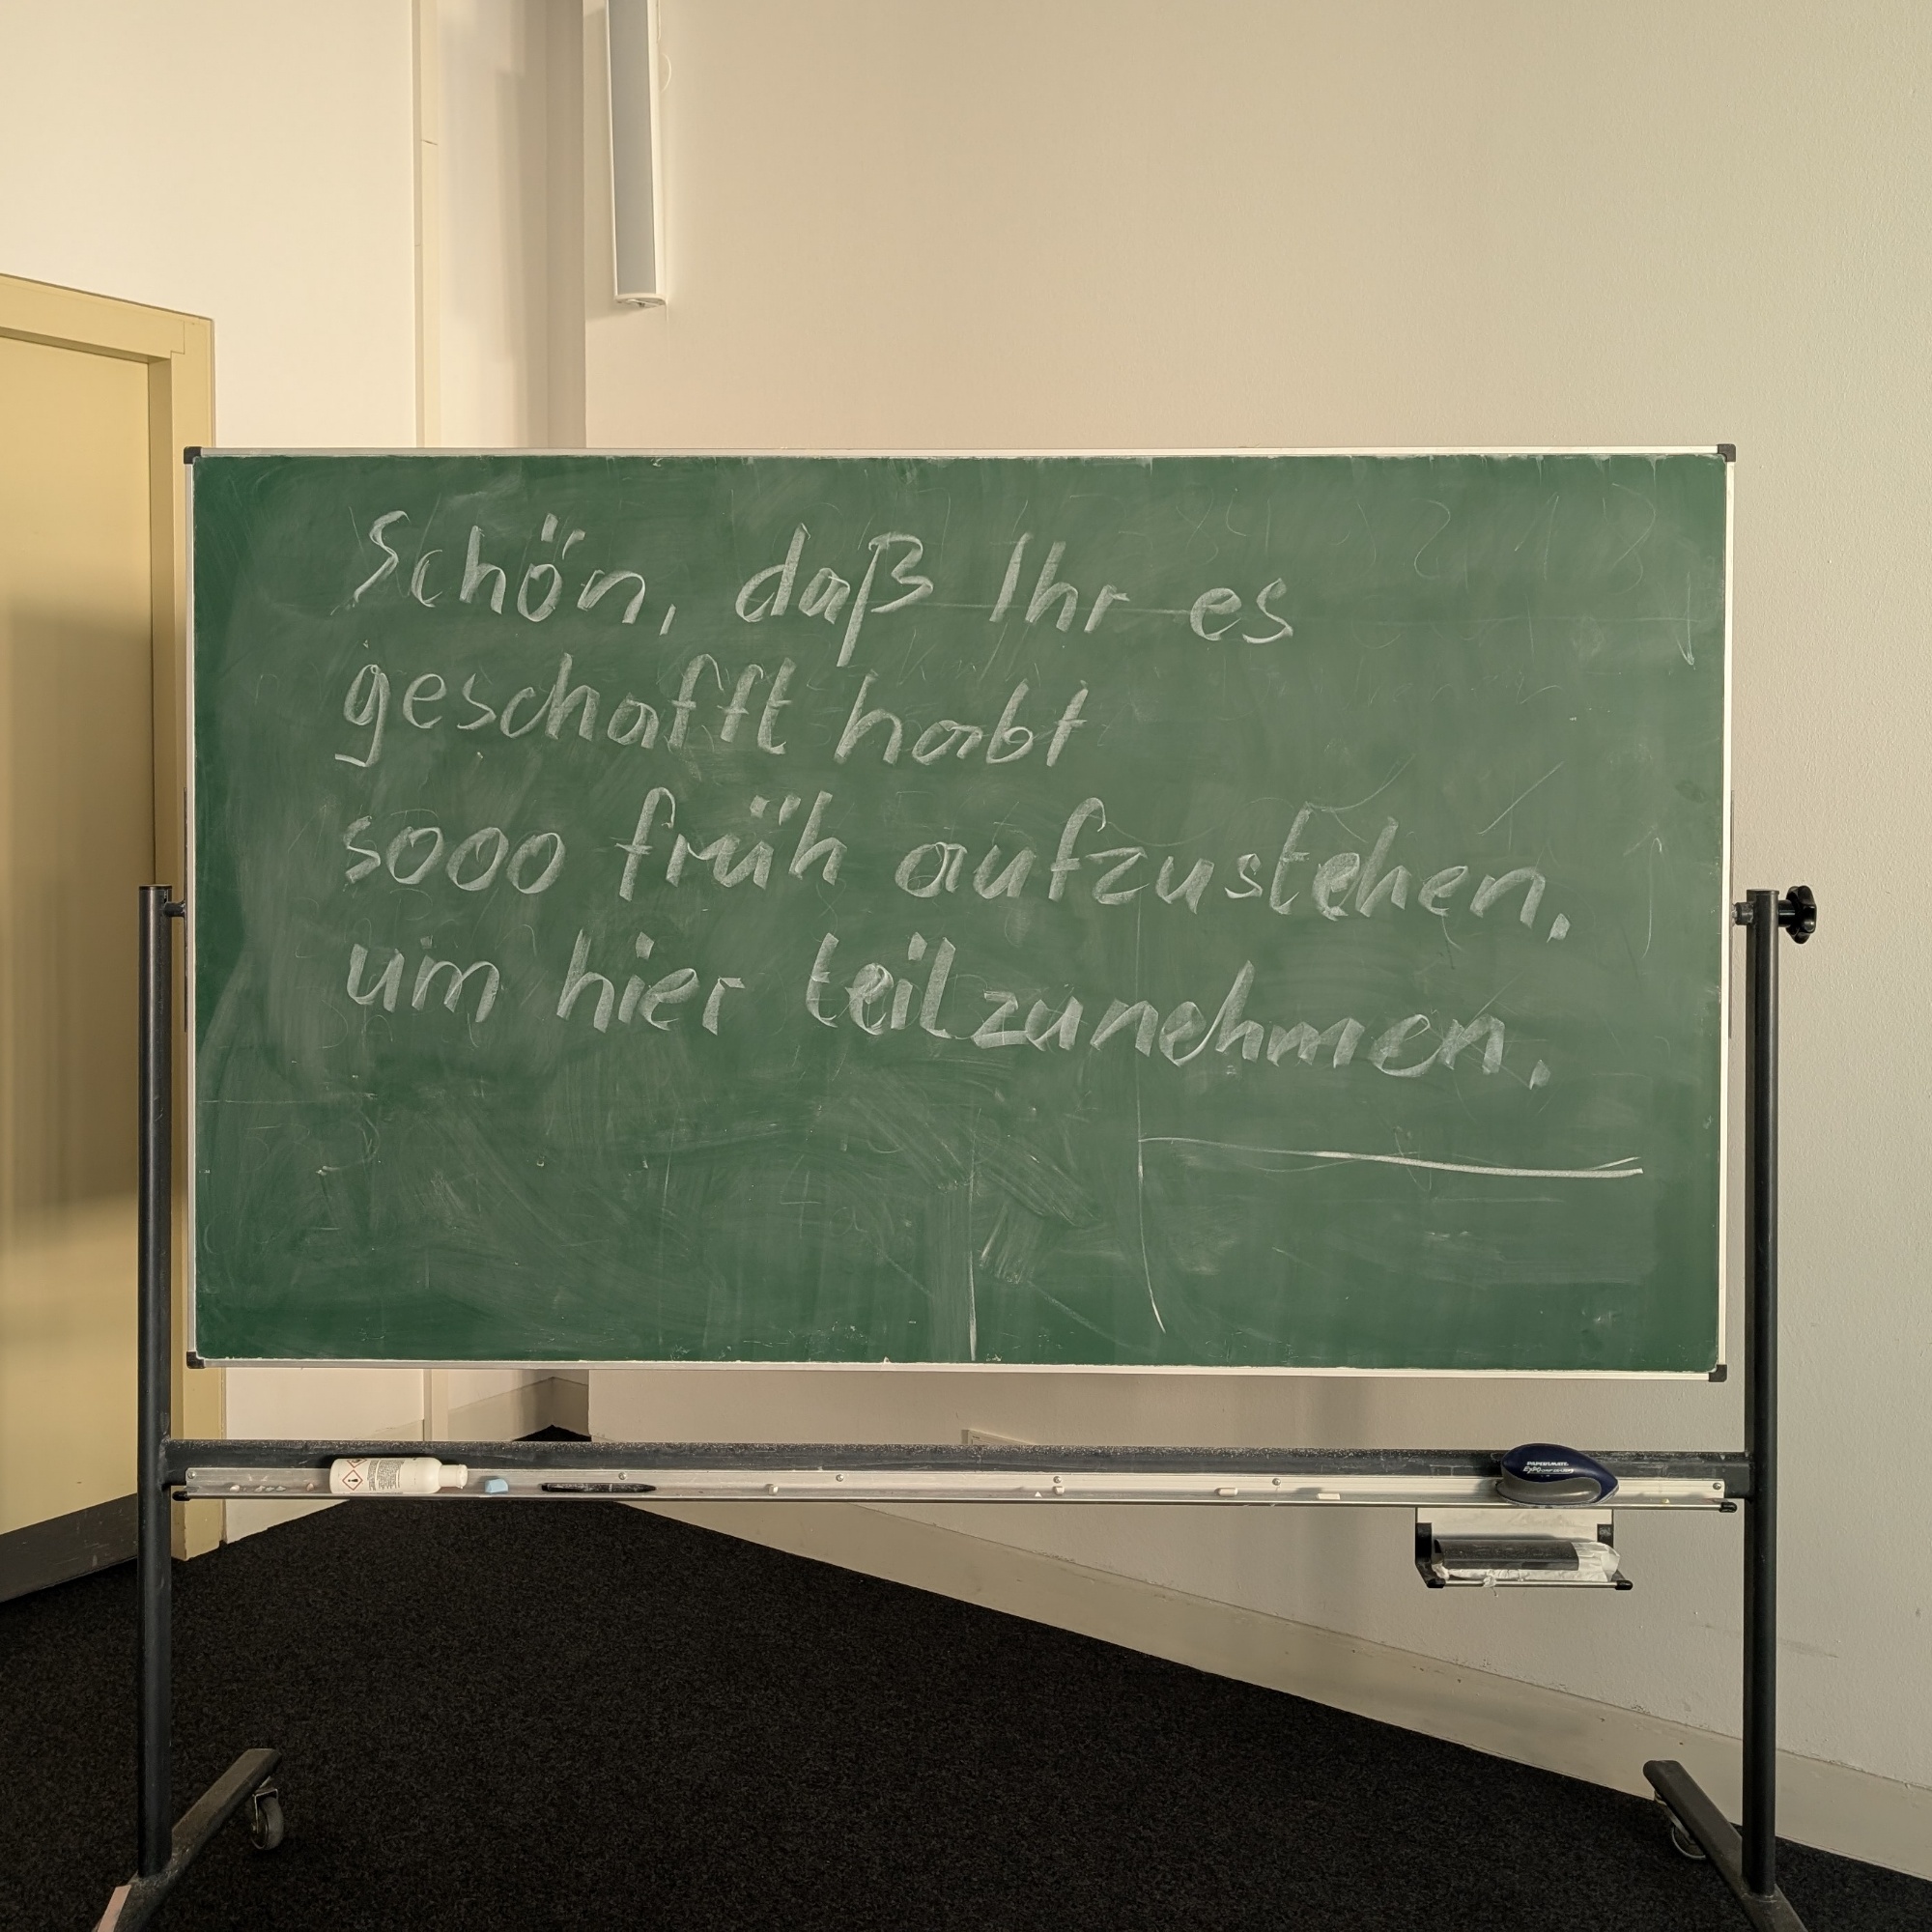 Schön, daß Ihr es
geschafft habt
sooo früh aufzustehen,
um hier teilzunehmen.
PAPERMATE